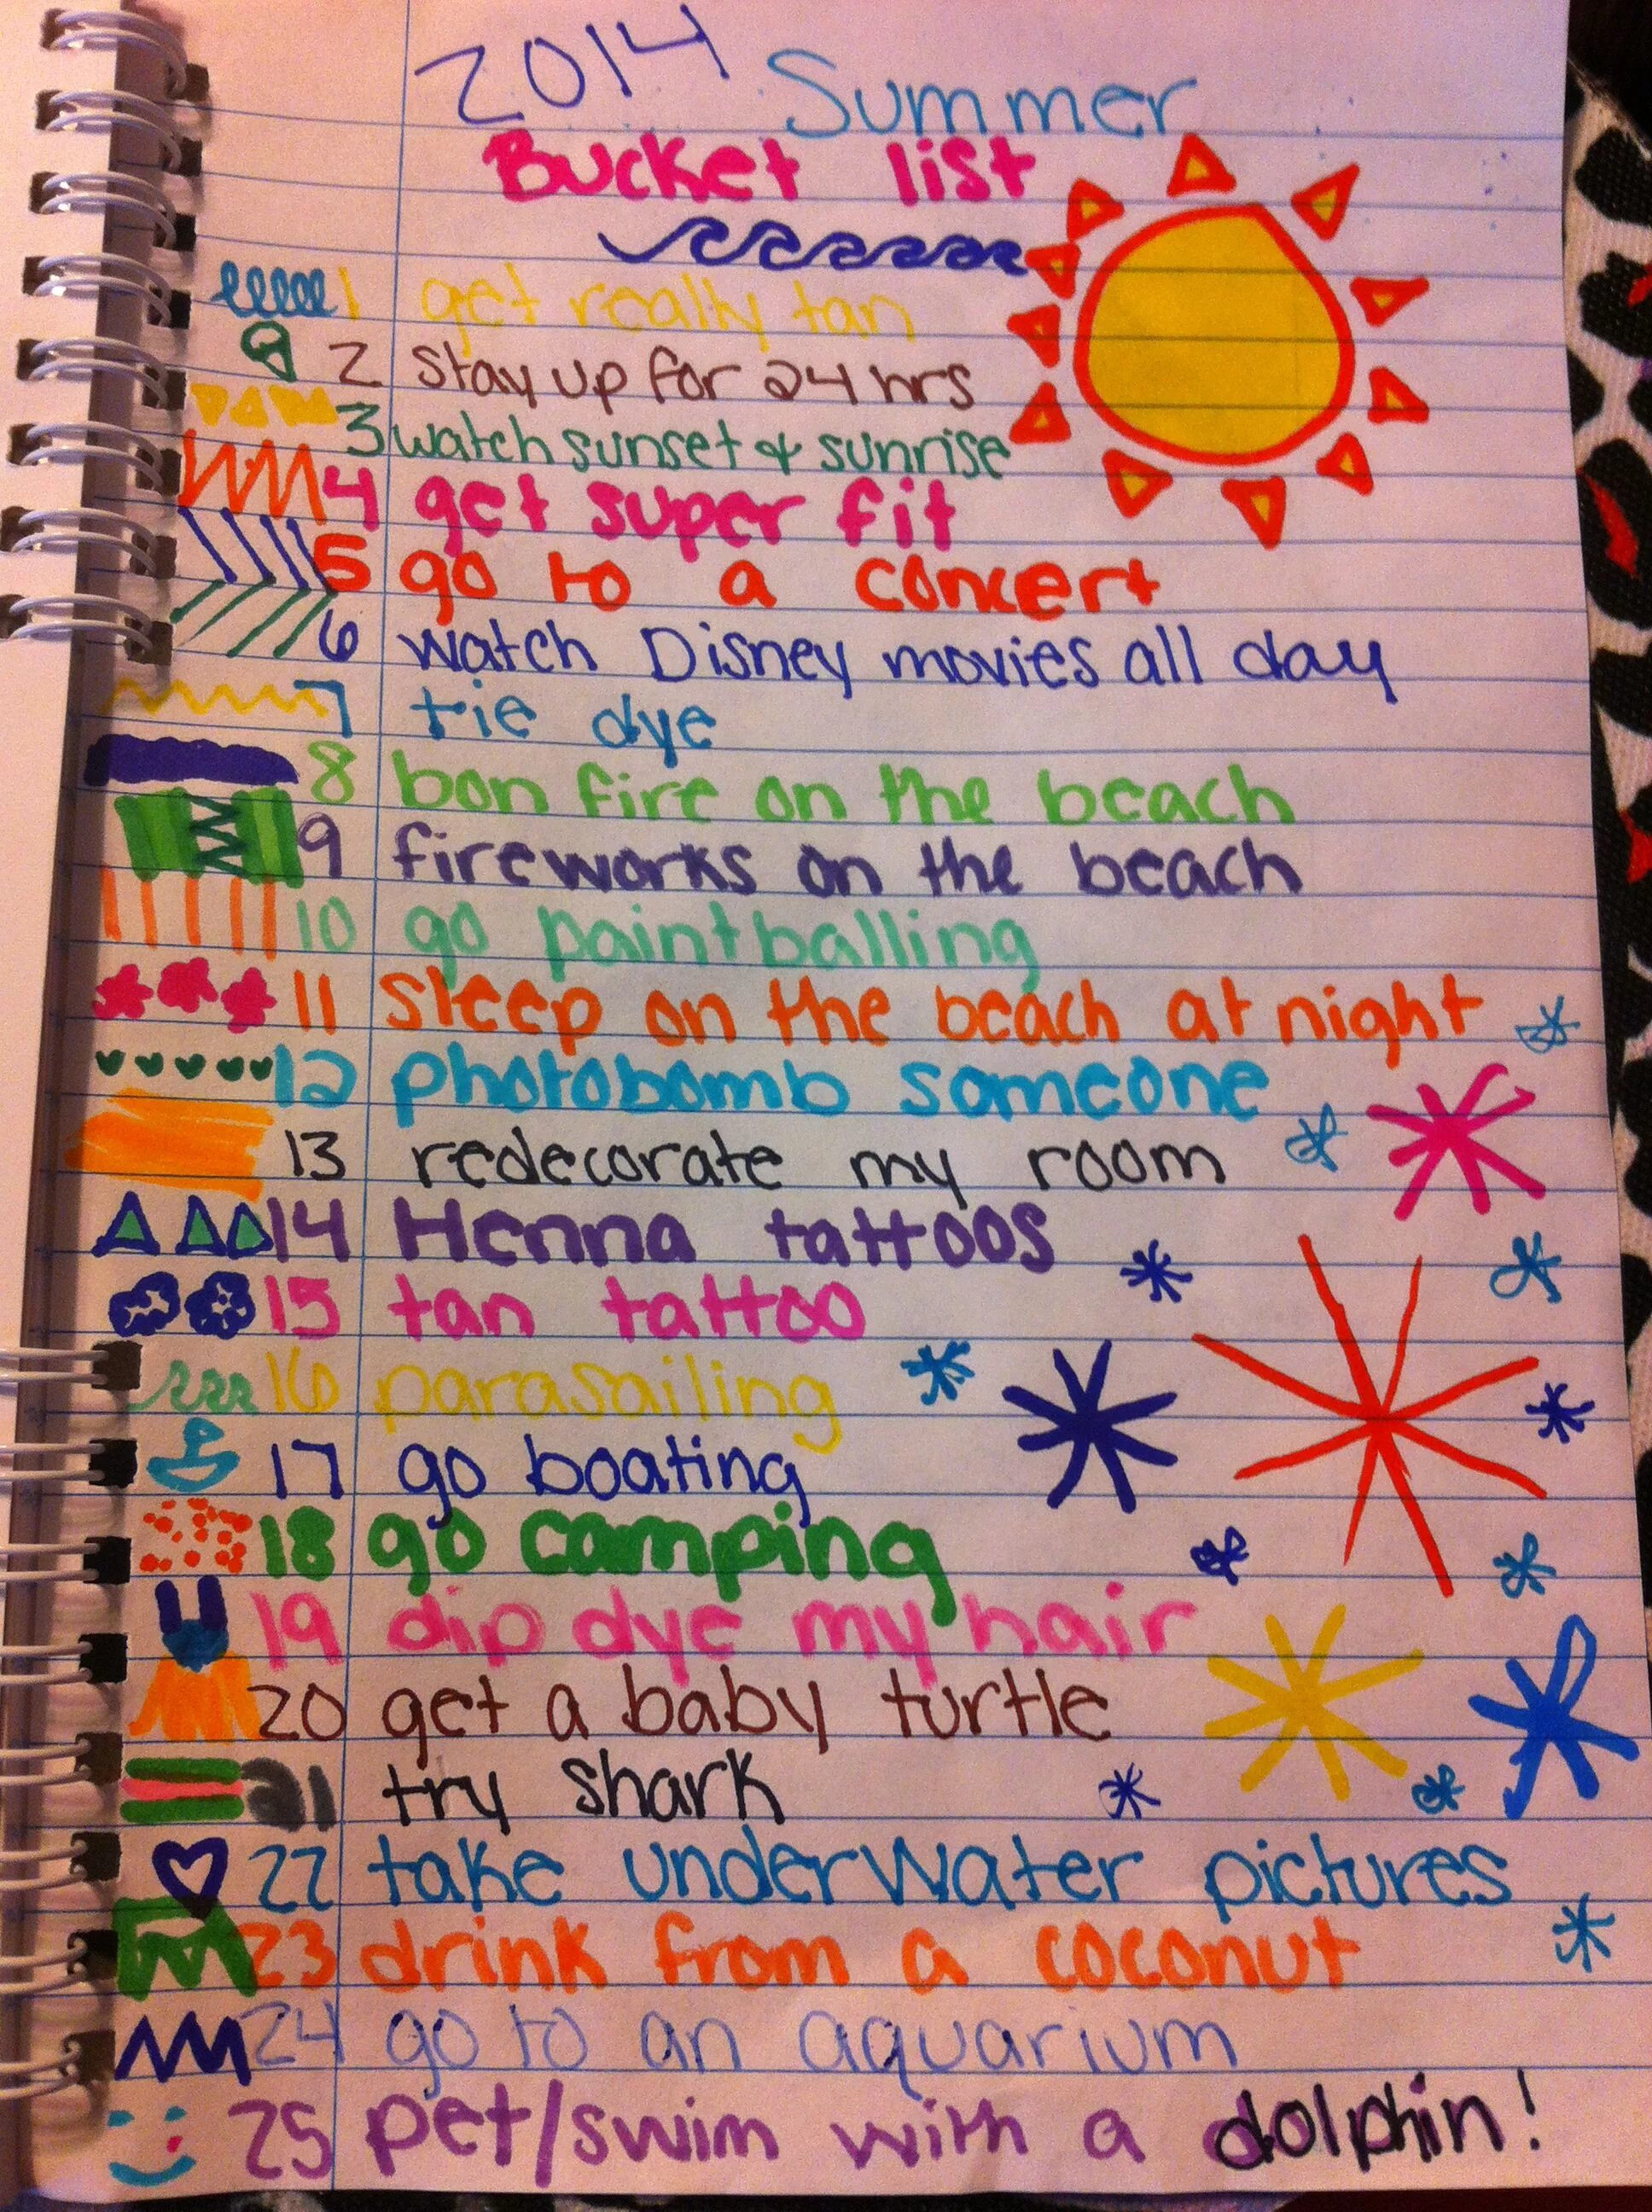 2014 Summer
Bucket list
1 get really tan
2 stay up for 24 hrs
3 watch sunset & sunrise
4 get super fit
5 go to a concert
6 watch Disney movies all day
7 tie dye
8 bon fire on the beach
9 fireworks on the beach
10 go paintballing
11 sleep on the beach at night
12 photobomb someone
13 redecorate my room
14 Henna tattoos
15 tan tattoo
16 parasailing
17 go boating
18 go camping
19 dip dye my hair
20 get a baby turtle
21 try shark
22 take underwater pictures
23 drink from a coconut
24 go to an aquarium
25 pet/swim with a dolphin!